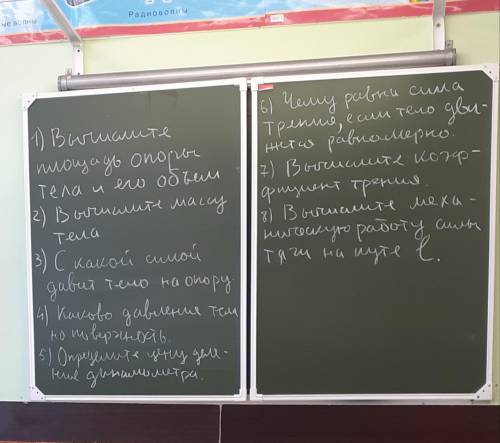 Радиоволны
1) Вычислите
площадь опоры
тела и его объем
2) Вычислите массу
тела
3) С какой силой
давит тело на опору.
4) Каково давления тела
на поверхность.
5) Определите цену деле-
ние динамометра.
6) Чему равна сила
трения, если тело дви-
жется равномерно.
7) Вычислите коэф-
фициент трения.
8) Вычислите меха-
ническую работу силы
тяги на путе l.